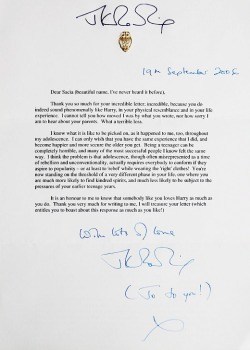 JKRowling
19th September 2006
Dear Sacia (beautiful name, I've never heard it before),
Thank you so much for your incredible letter; incredible, because you do
indeed sound phenomenally like Harry, in your physical resemblance and in your life
experience. I cannot tell you how moved I was by what you wrote, nor how sorry I
am to hear about your parents. What a terrible loss.
I know what it is like to be picked on, as it happened to me, too, throughout
my adolescence. I can only wish that you have the same experience that I did, and
become happier and more secure the older you get. Being a teenager can be
completely horrible, and many of the most successful people I know felt the same
way. I think the problem is that adolescence, though often misrepresented as a time
of rebellion and unconventionality, actually requires everybody to conform if they
aspire to popularity – or at least to 'rebel' while wearing the 'right' clothes! You're
now standing on the threshold of a very different phase in your life, one where you
are much more likely to find kindred spirits, and much less likely to be subject to the
pressures of your earlier teenage years.
It is an honour to me to know that somebody like you loves Harry as much as
you do. Thank you very much for writing to me, I will treasure your letter (which
entitles you to boast about this response as much as you like!)
With lots of love
JKRowling
(Jo to you!)
x